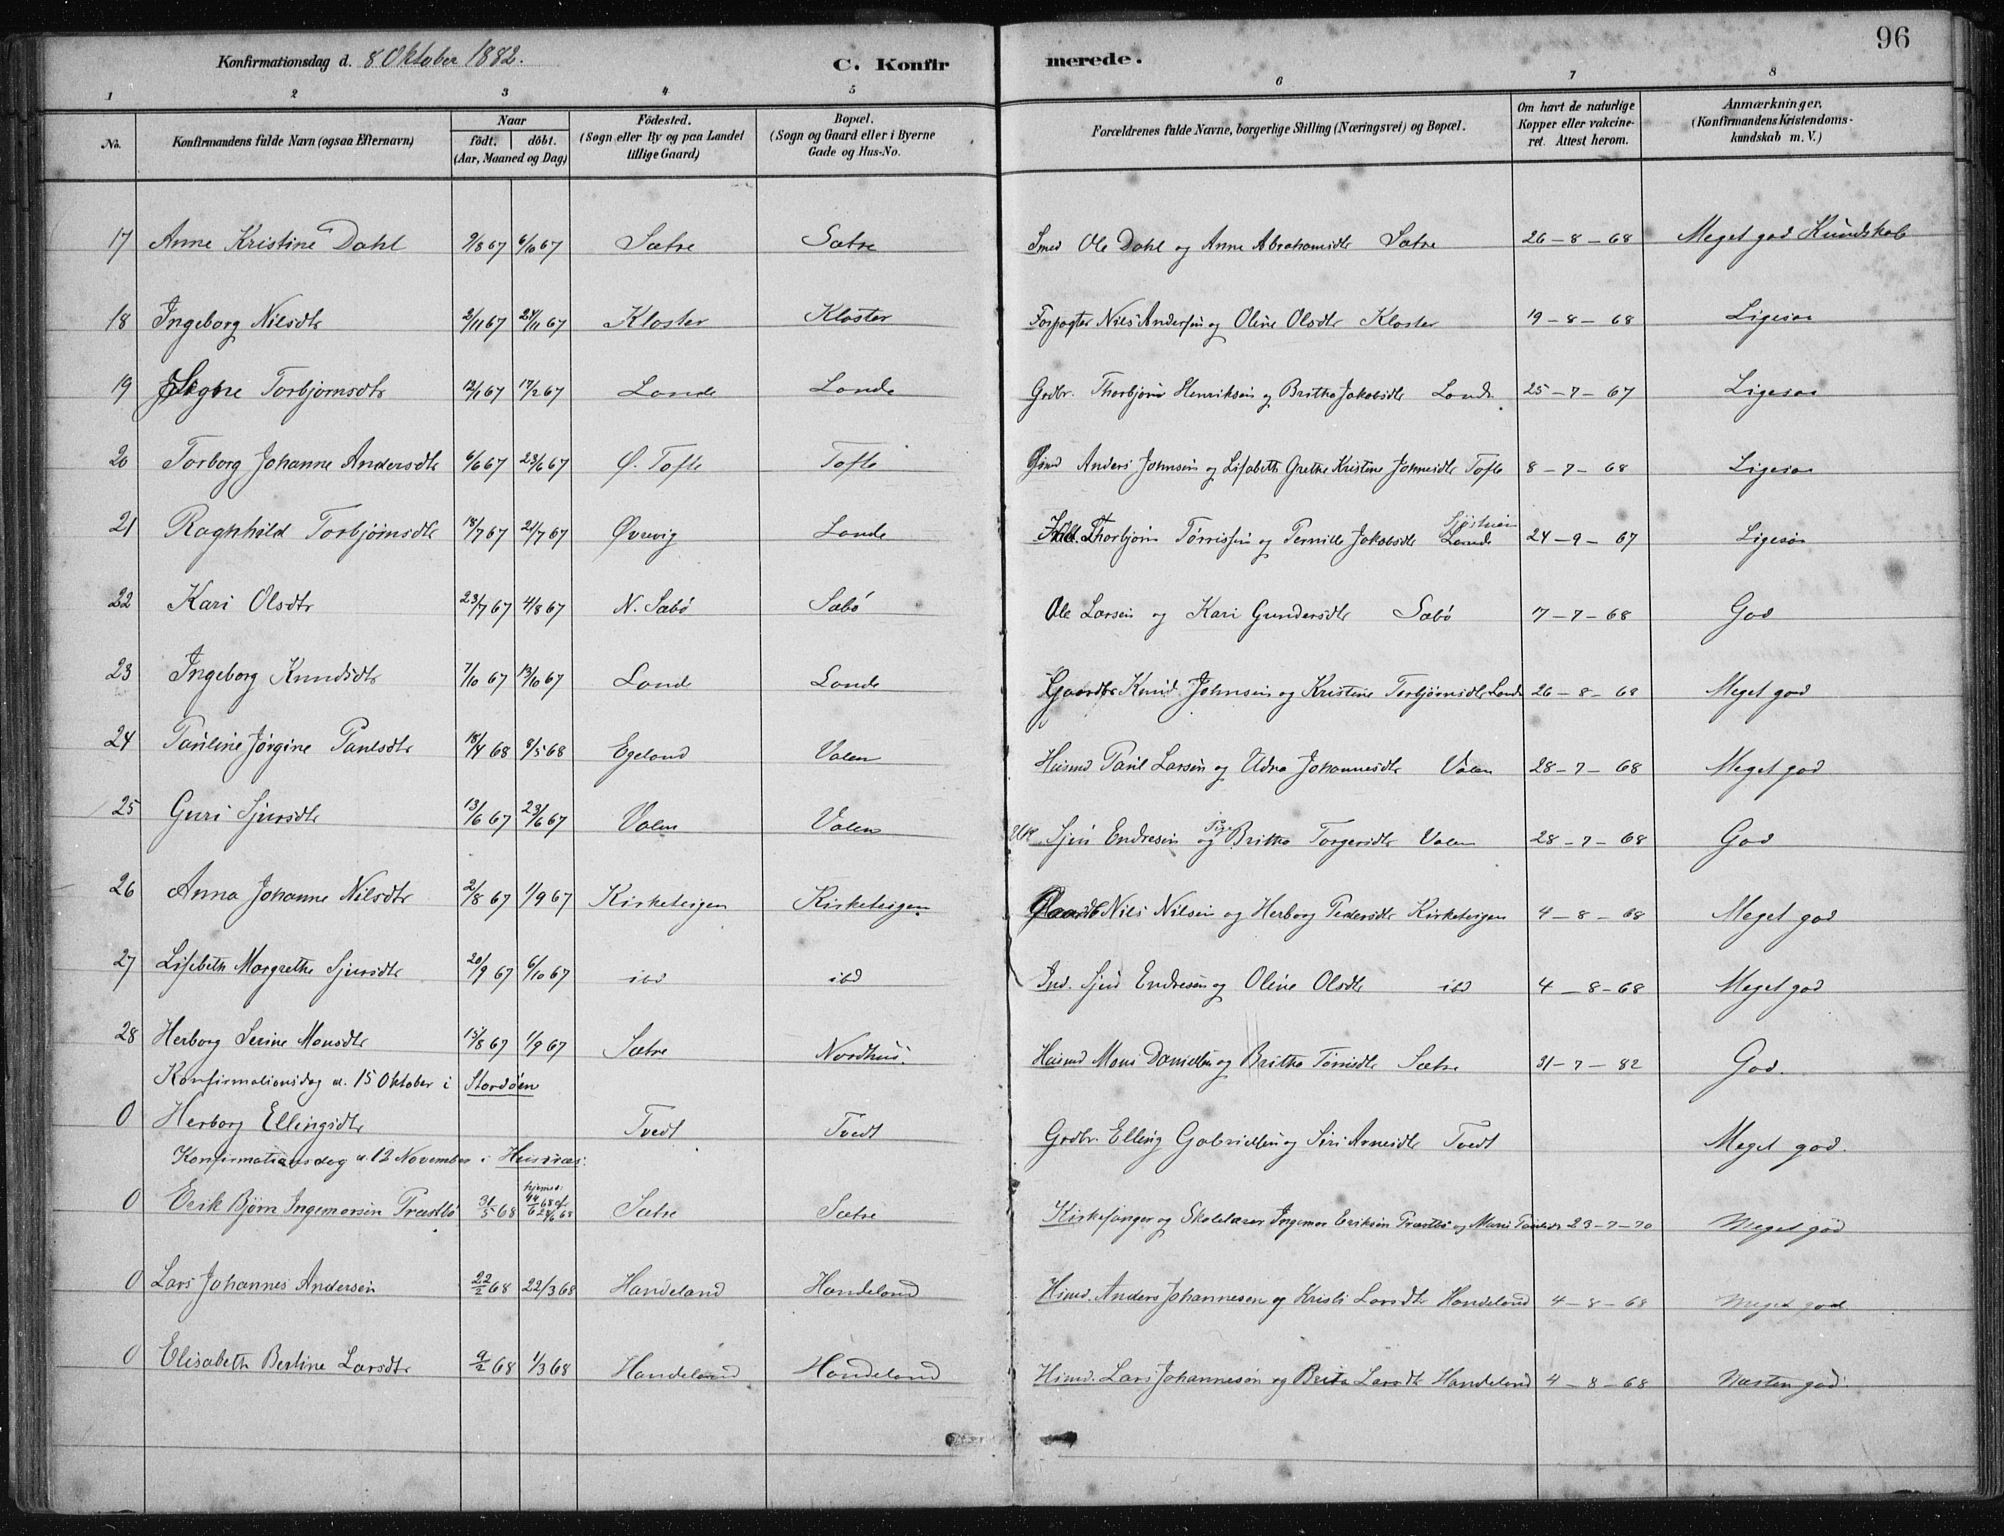 96
Konfirmationsdag d. 8 Oktober 1882. C. Konfirmerede.
1 2 3 4 5 6 7 8
No. Konfirmandens fulde Navn (ogsaa Efternavn) Naar födt. döbt. (Aar, Maaned og Dag) Födested. (Sogn eller By og paa Landet tillige Gaard) Bopæl. (Sogn og Gaard eller i Byerne Gade og Hus-No. Forældrenes fulde Navne, borgerlige Stilling (Næringsvei) og Bopæl. Om havt de naturlige Kopper eller vakcineret. Attest herom. Anmærkninger. (Konfirmandens Kristendomskundskab m. V.)
17 Anne Kristine Dahl 9/8 67 6/10 67 Sætre Sætre Smed Ole Dahl og Anne Abrahamsdtr Sætre 26-8-68 Meget god Kundskab
18 Ingeborg Nilsdtr 2/11 67 24/11 67 Kloster Kloster Forpagter Nils Andersen og Oline Olsdtr Kloster 19-8-68 Ligesaa
19 Torbjørnsdtr 12/1 67 17/2 67 Lande Lande Grdbr. Thorbjørn Henriksen og Britha Jakobsdtr Lande 25-7-67 Ligesaa
20 Torborg Johanne Andersdtr 6/6 67 23/6 67 Ø. Tofte Tofte Anders Johnsen og Lisabeth Grethe Kristine Johnesdtr Tofte 8-7-68 Ligesaa
21 Ragnhild Torbjørnsdtr 18/7 67 21/7 67 Øvrevig Lande Thorbjørn Tørrissen og Pernille Jakobsdtr Lande 24-9-67 Ligesaa
22 Kari Olsdtr 23/7 67 4/8 67 N. Sæbø Sæbø Ole Larsen og Kari Gundersdtr Sæbø 7-7-68 God
23 Ingeborg Knudsdtr 7/10 67 13/10 67 Lande Lande Gaardbr Knud Johnsen og Kristine Torbjørnsdtr Lande 26-8-68 Meget god
24 Pauline Jørgine Paulsdtr 18/4 68 8/5 68 Egeland Valen Husmd Paul Larsen og Udna Johannesdtr Valen 28-7-68 Meget god
25 Guri Sjursdtr 13/6 67 23/6 67 Valen Valen Sjur Endresen og Pige Britha Torgersdtr Valen 28-7-68 God
26 Anna Johanne Nilsdtr 2/8 67 1/9 67 Kirketeigen Kirketeigen Gaardb Nils Nilsen og Herborg Pedersdtr Kirketeigen 4-8-68 Meget god
27 Lisebeth Margrethe Sjursdtr 20/9 67 6/10 67 ibd ibd Ind. Sjur Endresen og Oline Olsdtr ibd 4-8-68 Meget god
28 Herborg Serine Monsdtr 15/8 67 1/9 67 Sætre Nordhus Husmd Mons Danielsen og Britha Tørrisdtr Sætre 31-7-82 God.
Konfirmationsdag d. 15 Oktober i Stordøen
0 Herborg Ellingsdtr Tvedt Tvedt Grdbr. Elling Gabrielsen og Siri Arnesdtr Tvedt Meget god.
Konfirmationsdag d. 12 November i Husnæs.
0 Erik Bjørn Ingemarsen Præstbø 31/5 68 hjemmed. 14/6 68 cf. 28/6 68 Sætre Sætre Kirkesanger og Skolelærer Ingemar Eriksen Præstbø og Marie Paulsdtr 23-7-70 Meget god
0 Lars Johannes Andersen 22/2 68 22/3 68 Handeland Handeland Husmd. Anders Johannesen og Kristi Larsdtr Handeland 4-8-68 Meget god
0 Elisabeth Bertine Larsdtr 9/2 68 1/3 68 Handeland Handeland Husmd. Lars Johannesen og Brita Larsdtr Handeland 4-8-68 Næsten god.